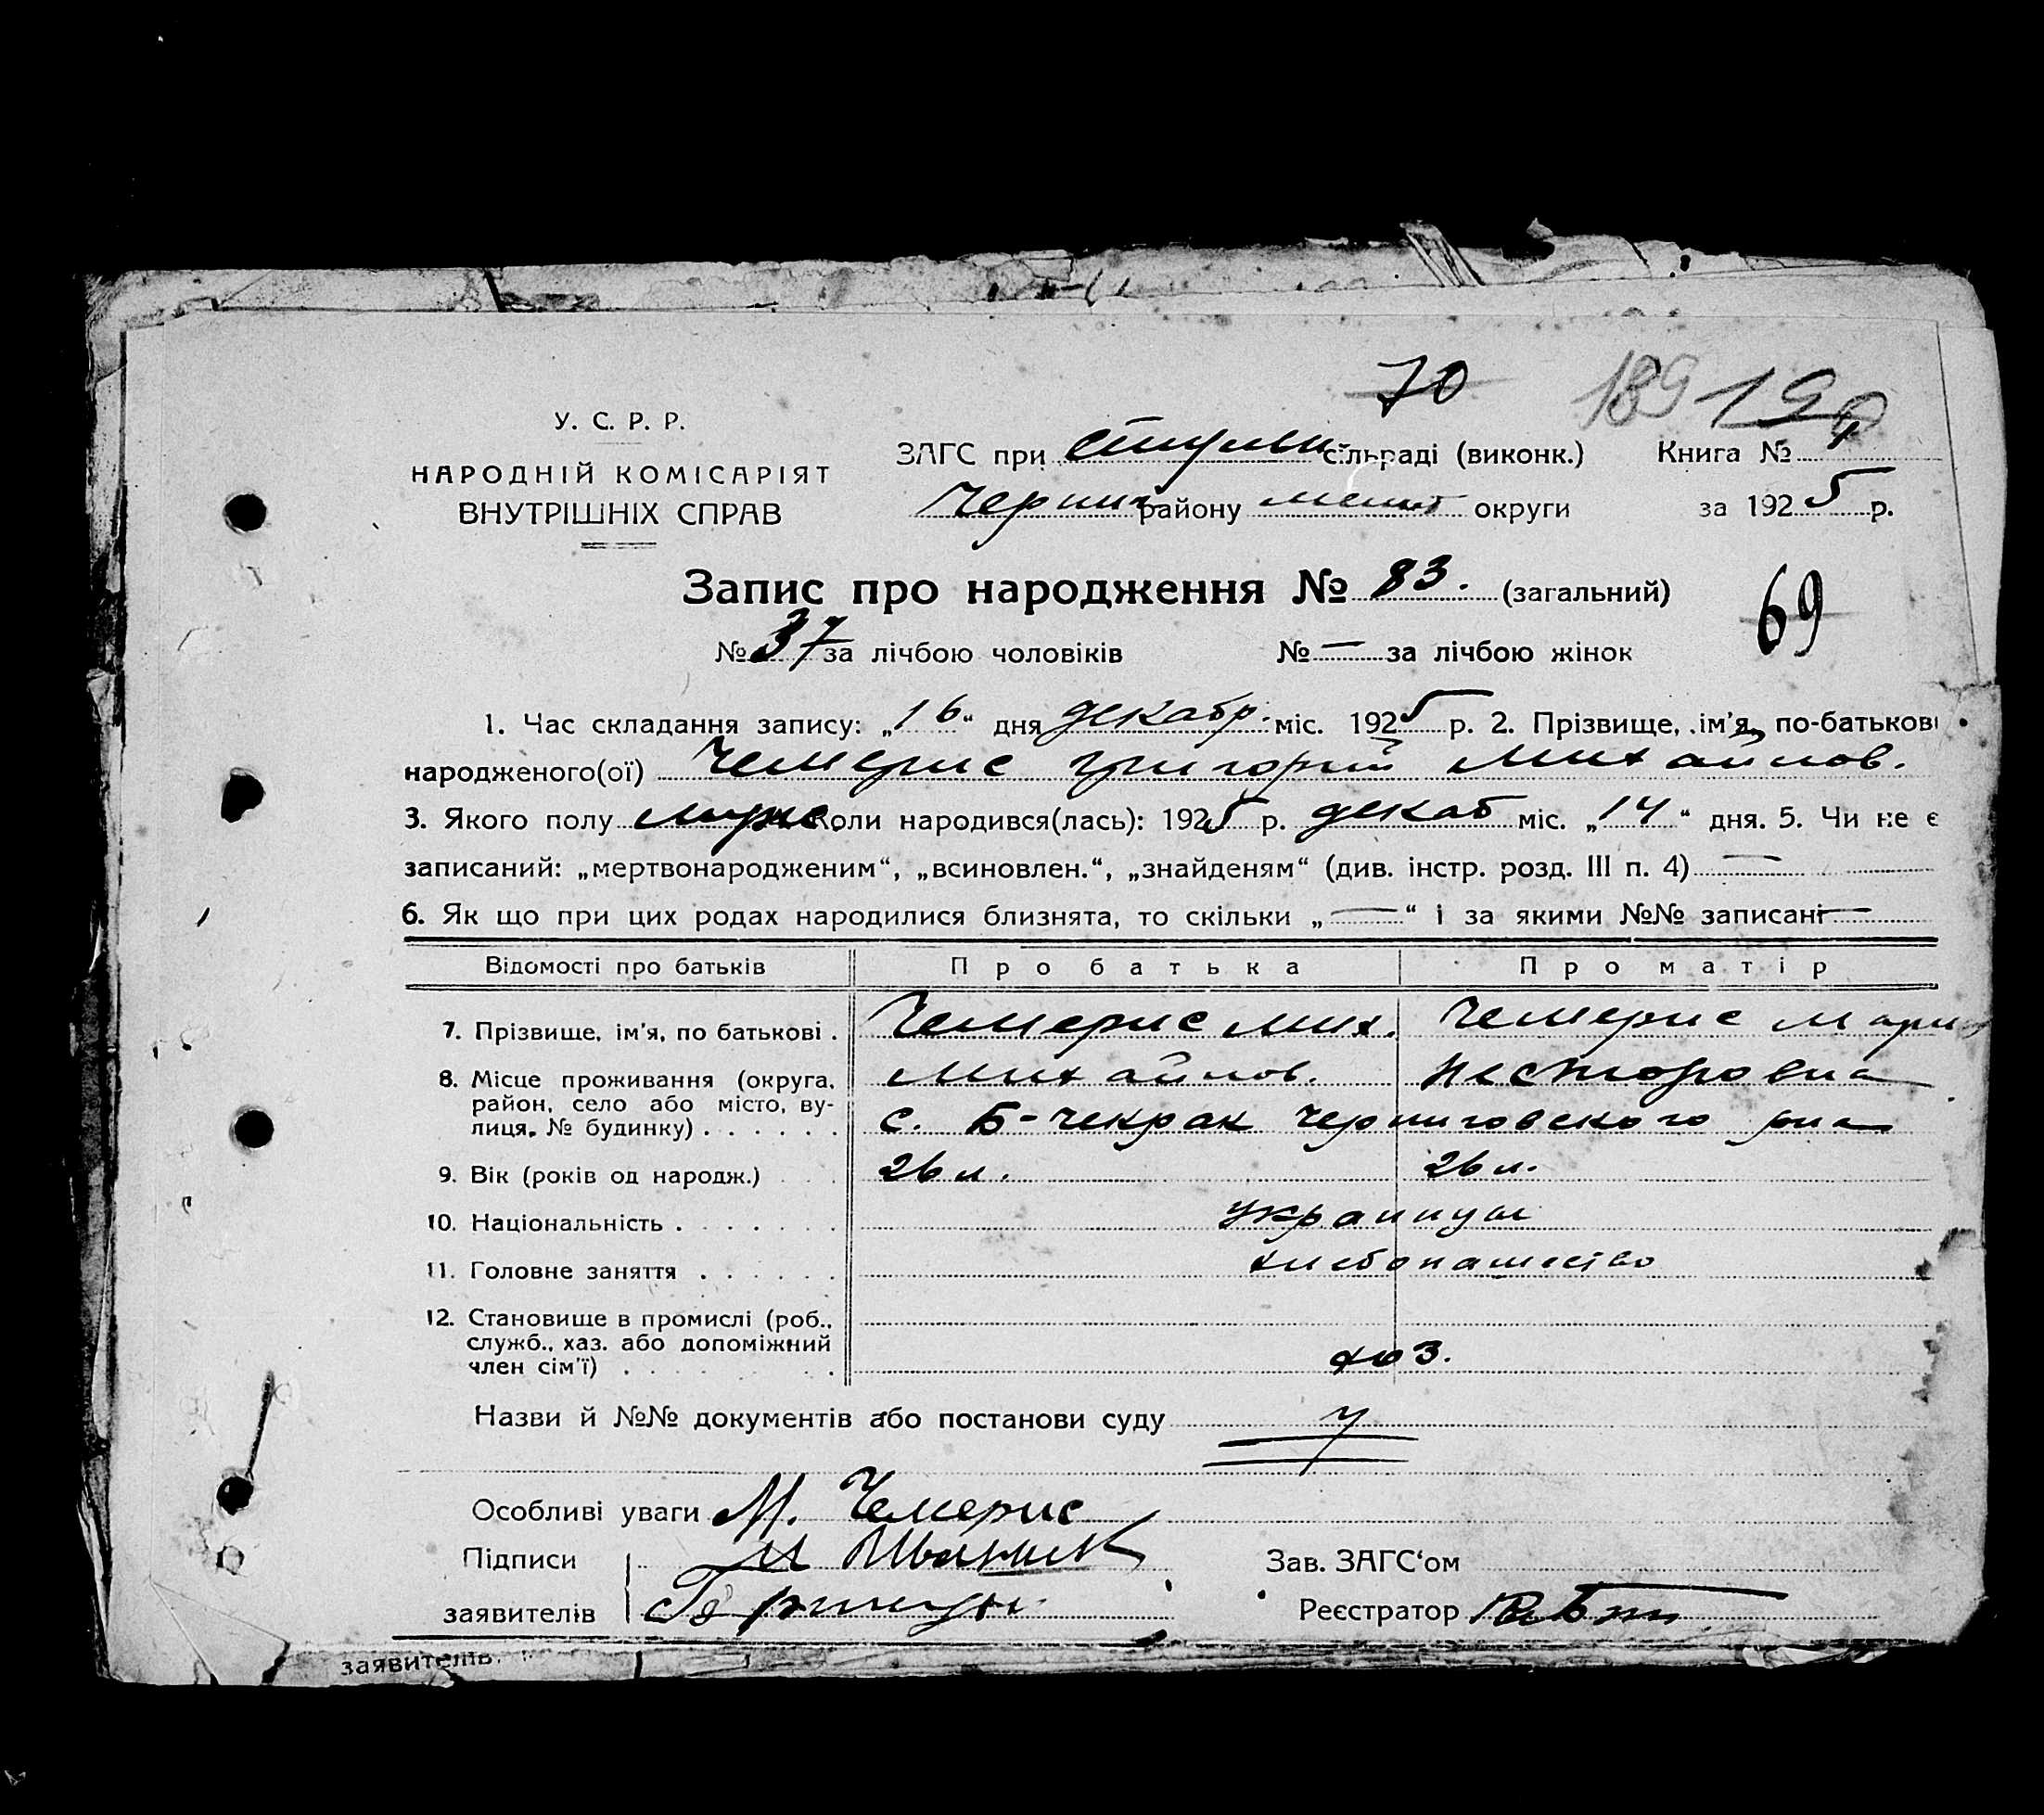 70 189 190
У. С. Р. Р.
НАРОДНІЙ КОМІСАРІЯТ
ВНУТРІШНІХ СПРАВ
ЗАГС при сільраді (виконк.) Книга №
Черниг району мелит округи за 1925 р.
Запис про народження № 83. (загальний)
69
№ 37 за лічбою чоловіків № — за лічбою жінок
1. Час складання запису: „16“ дня декабр. міс. 1925 р. 2. Прізвище, ім'я, по-батькові
народженого(ої) Чемерис Григорий Михайлов.
3. Якого полу муж. Коли народився(лась): 1925 р. декаб міс. „14“ дня. 5. Чи не є
записаний: „мертвонародженим“, „всиновлен.“, „знайденям“ (див. інстр. розд. III п. 4) —
6. Як що при цих родах народилися близнята, то скільки „—“ і за якими №№ записані —
Відомості про батьків Про батька Про матір
7. Прізвище, ім'я, по батькові . Чемерис Мих. Чемерис Мария
Михайлов. Несторовна
8. Місце проживання (округа,
район, село або місто, ву-
лиця, № будинку) . . . . . . с. Б-Чекрак Черниговского рна
9. Вік (років од народж.) . . . 26 л. 26 л.
10. Національність . . . . . . украинцы
11. Головне заняття . . . . . . хлебопашество
12. Становище в промислі (роб.,
служб., хаз. або допоміжний
член сім'ї) . . . . . . . . хоз.
Назви й №№ документів або постанови суду
Особливі уваги М. Чемерис
Підписи
заявителів
Зав. ЗАГС‘ом
Реєстратор
заявителів.